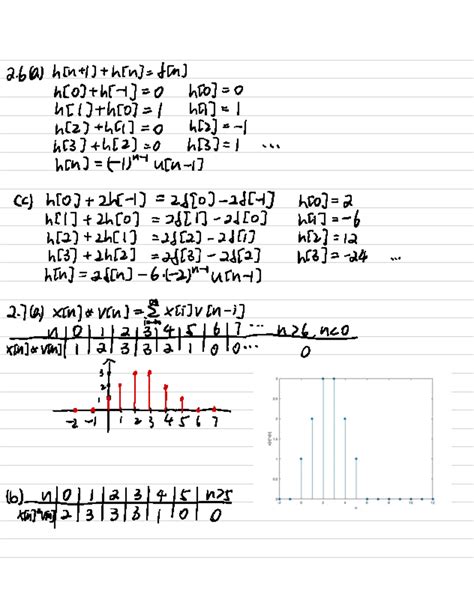 2.6(a) h[n+1]+h[n]=δ[n]
h[0]+h[-1]=0 h[0]=0
h[1]+h[0]=1 h[1]=1
h[2]+h[1]=0 h[2]=-1
h[3]+h[2]=0 h[3]=1 ...
h[n]=(-1)^{n-1} u[n-1]
(c) h[0]+2h[-1]=2δ[0]-2δ[-1] h[0]=2
h[1]+2h[0]=2δ[1]-2δ[0] h[1]=-6
h[2]+2h[1]=2δ[2]-2δ[1] h[2]=12
h[3]+2h[2]=2δ[3]-2δ[2] h[3]=-24 ...
h[n]=2δ[n]-6·(-2)^{n-1} u[n-1]
2.7(a) x[n]*v[n]=∑ x[i]v[n-i]
n 0 1 2 3 4 5 6 7 ... n>6 n<0
x[n]*v[n] 1 2 3 3 2 1 0 0 ... 0
3
2
1
-2 -1 1 2 3 4 5 6 7
(b) n 0 1 2 3 4 5 n>5
x[n]*v[n] 2 3 3 3 1 0 0